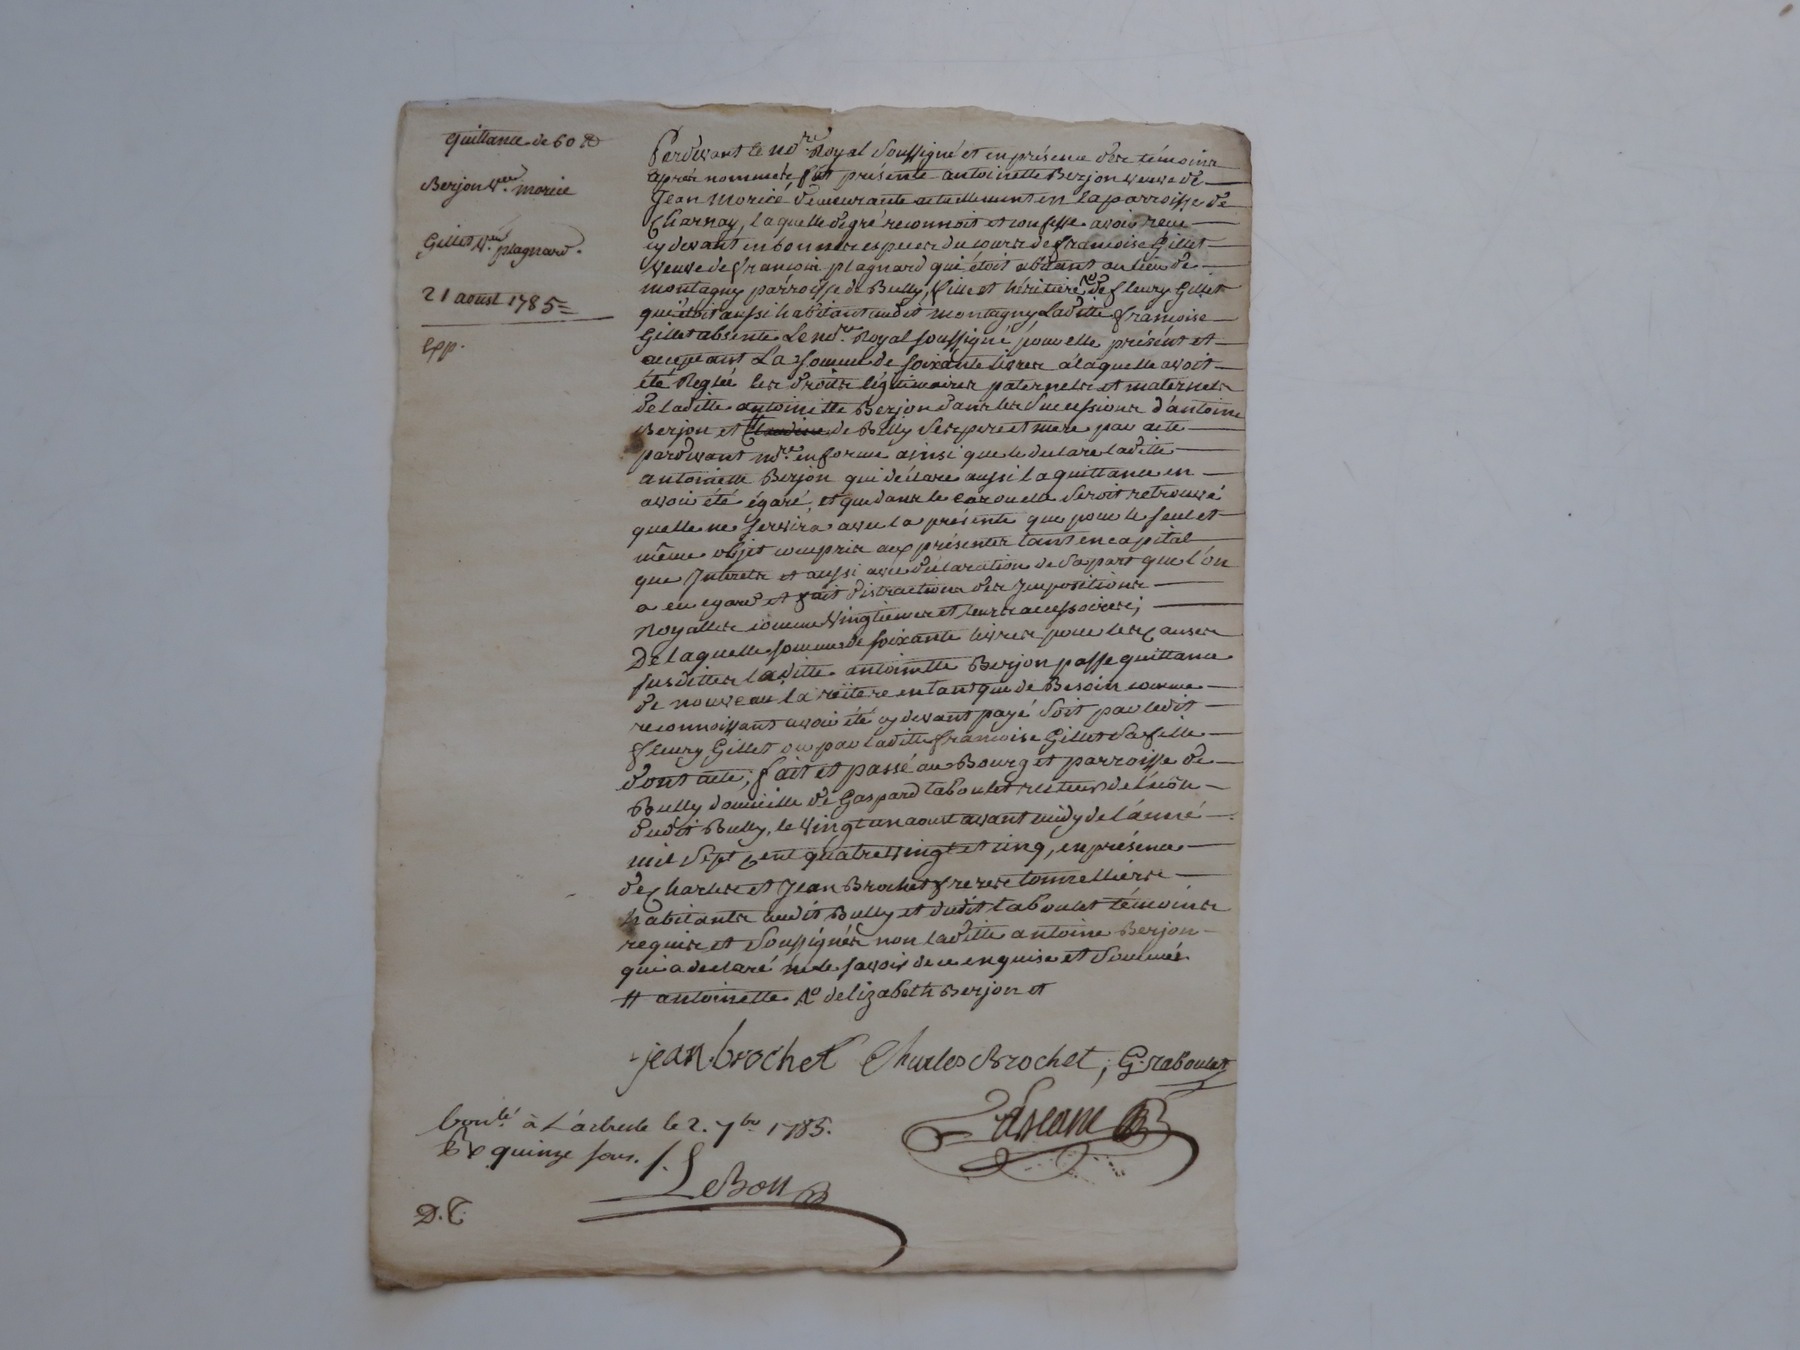 quittance de 60 ₶
Berjon Vve morice
Gillet Vve plagnard.
21 aoust 1785
Epp.
Pardevant le nore Royal soussigné et en présence des témoins
après nommés fut présente antoinette Berjon veuve de
Jean Morice demeurante actuellement en la parroisse de
Charnay, laquelle de gré reconnoit et confesse avoir reçu
cy devant en bonnes espèces du cours de françoise Gillet
veuve de françois plagnard qui étoit abitant au lieu de
montagny parroisse de Bully, fille et héritière de fleury Gillet
qui étoit aussi habitant audit montagny, Laditte françoise
Gillet absente Le nore Royal soussigné pour elle présent et
acceptant La somme de soixante livres a laquelle avoit
été Reglée les droits légitimaires paternels et maternels
de laditte antoinette Berjon dans les successions d'antoine
Berjon et de Billy ses pere et mere par acte
pardevant nore en forme ainsi que le declare laditte
antoinette Berjon qui déclare aussi la quittance en
avoir été égaré, et que dans le cas ou elle seroit retrouvé
quelle ne servira avec la présente que pour le seul et
même objet compris aux présentes tant en capital
que Interets et aussi avec déclaration de sa part que l'on
a eu egard et fait distraction des Impositions
Royalles comme Vingtiemes et leurs accessoires;
De laquelle somme de soixante livres pour les causes
susdittes laditte antoinette Berjon passe quittance
de nouveau la réitere en tant que de Besoin comme
reconnoissant avoir été cy devant payé soit par ledit
fleury Gillet ou par laditte françoise Gillet sa fille
dont acte; fait et passé au Bourg et parroisse de
Bully domicille de Gaspard taboulet
dudit Bully, le vingt un aoust avant midy de l'année
mil sept cent quatre vingt et cinq, en présence
de Charles et Jean Brochet freres tonnelliers
habitants audit Bully et dudit taboulet témoins
requis et soussignés non laditte antoine Berjon
qui a declaré ne le savoir de ce enquise et sommée
# antoinette delizabeth Berjon et
jean brochet Charles Brochet, G. Taboulet
le 2. 7bre 1785.
quinze sous.
LeBon
D.C.